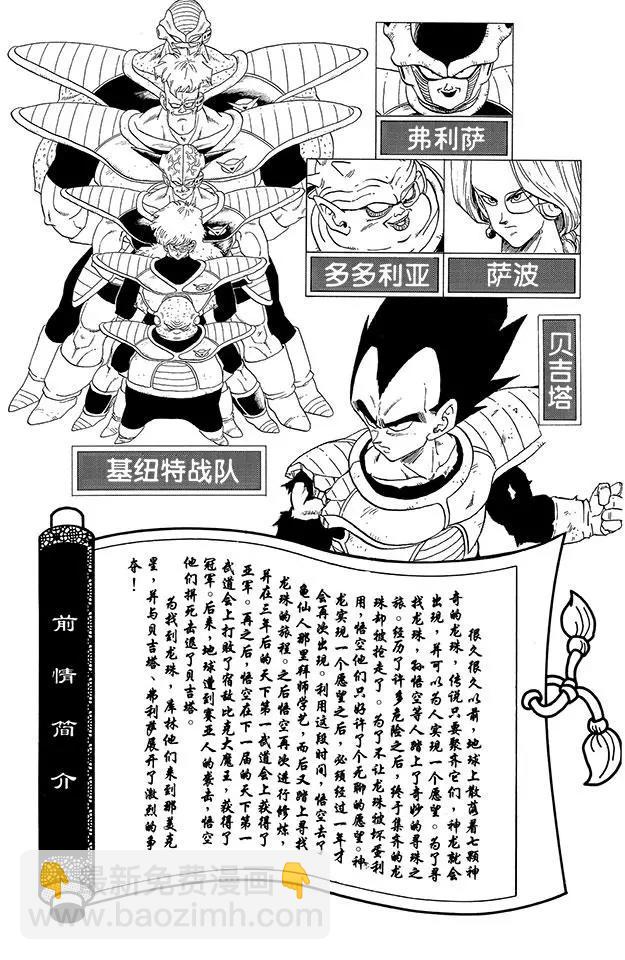 弗利萨
多多利亚
萨波
贝吉塔
基纽特战队
前情简介
很久很久以前，地球上散落着七颗神
奇的龙珠，传说只要聚齐它们，神龙就会
出现，并可以为人实现一个愿望。为了寻
找龙珠，孙悟空等人踏上了奇妙的寻珠之
旅。经历了许多危险之后，终于集齐的龙
珠却被抢走了。为了不让龙珠被坏蛋利
用，悟空他们只好许了个无聊的愿望。神
龙实现一个愿望之后，必须经过一年才
会再次出现。利用这段时间，悟空去了
龟仙人那里拜师学艺，而后又踏上寻找
龙珠的旅程。之后悟空再次进行修炼，
并在三年后的天下第一武道会上获得了
亚军。再之后，悟空在下一届的天下第一
武道会上打败了宿敌比克大魔王，获得了
冠军。后来，地球遭到赛亚人的袭击，悟空
他们拼死击退了贝吉塔。
为找到龙珠，库林他们来到那美克
星，并与贝吉塔、弗利萨展开了激烈的争
夺！
最新免费漫画
www.baozimh.com